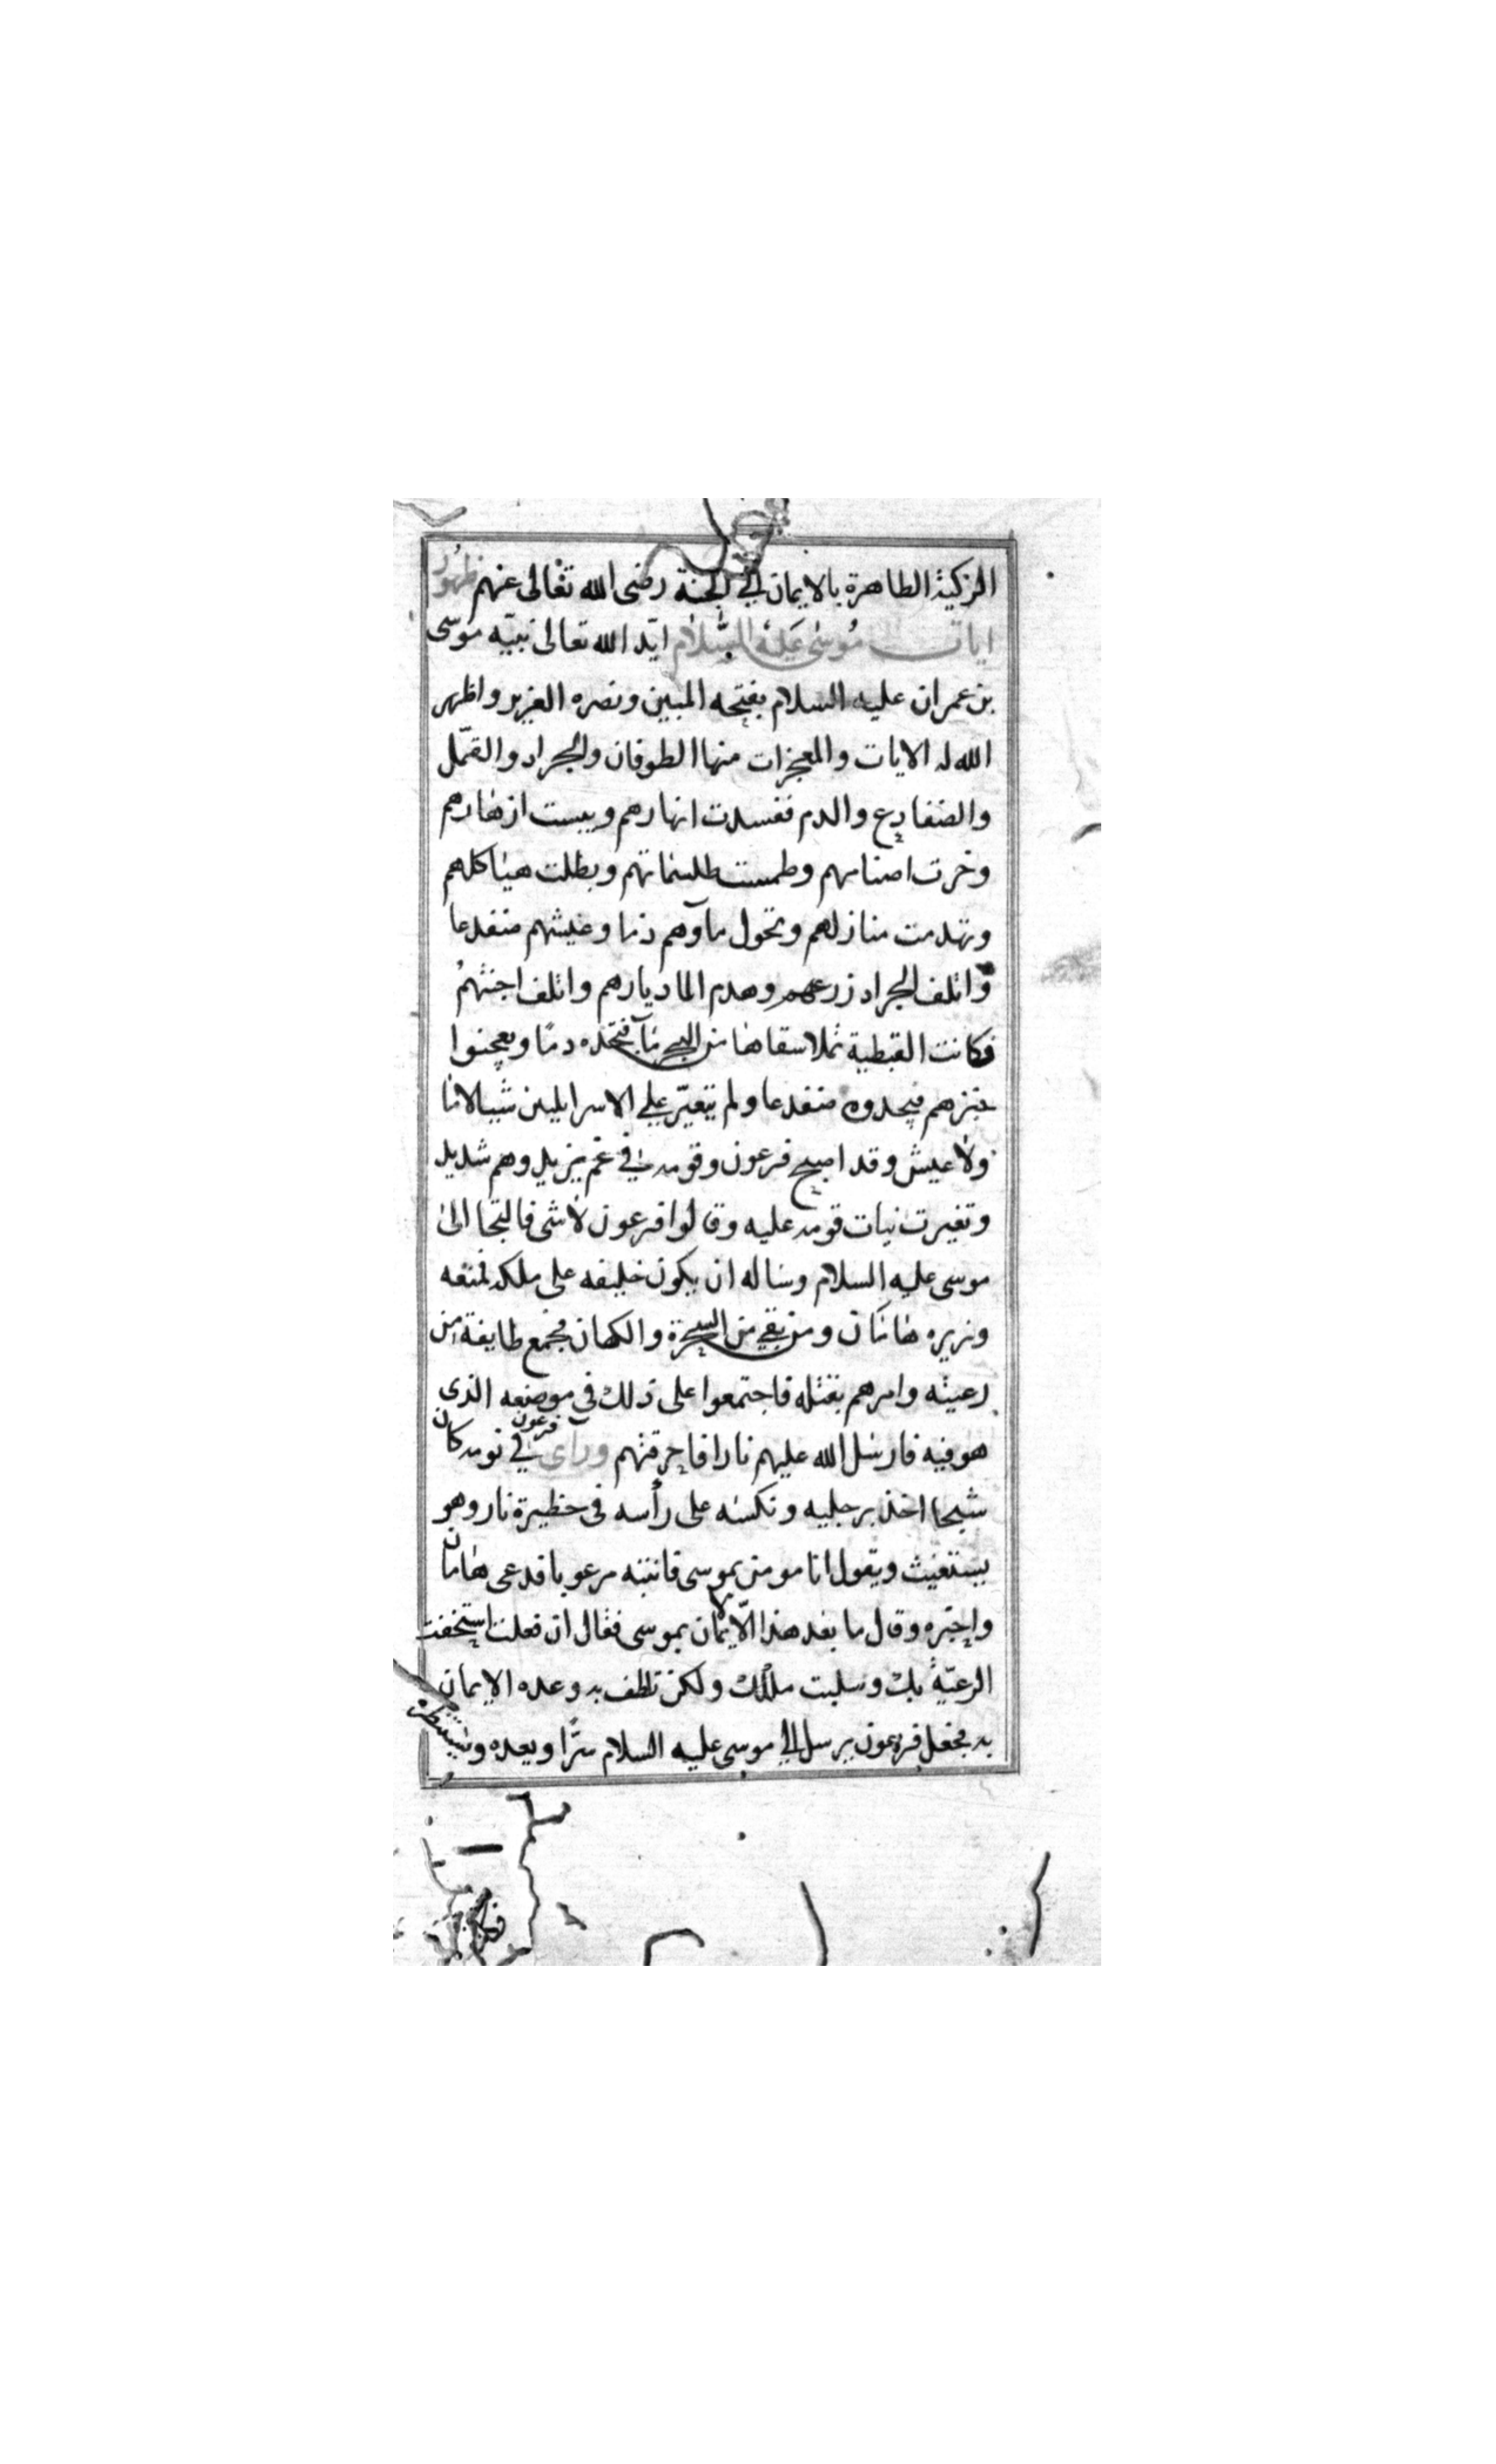 الزكية الطاهرة بالايمان الي الجنة رضى الله تعالى عنهم ظهور
ايات موسى عليه السلام ايد الله تعالى نبيه موسى
بن عمران عليه السلام بفتحه المبين ونصره العزيز واظهر
الله له الايات والمعجزات منها الطوفان والجراد والقمّل
والضفادع والدم ففسدت انهارهم ويبست ازهارهم
وخرت اصنامهم وطمست طلسماتهم وبطلت هياكلهم
وتهدمت منازلهم وتحول مآوهم دما وعيشهم ضفدعا
واتلف الجراد زرعهم وهدم الما ديارهم واتلف اجنتهم
فكانت القبطية تملا سقاها من البحر مآ فتجده دمًا ويعجنوا
خبزهم فيجدوه ضفدعا ولم يتغيّر علي الاسرايليين شيا لا ما
ولا عيش وقد اصبح فرعون وقومه في غم يزيد وهم شديد
وتغيرت نيات قومه عليه وقالوا فرعون لا شى فالتجا الى
موسى عليه السلام وساله ان يكون خليفه على ملكه فمنعه
وزيره هامان ومن بقي من السحرة والكهان فجمع طايفة من
رعيته وامرهم بقتله فاجتمعوا على ذلك في موضعه الذى
هو فيه فارسل الله عليهم نارا فاحرقتهم وراى فرعون في نومه كان
شبحا اخذ برجليه ونكسه على رأسه فى حظيرة نار وهو
يستغيث ويقول انا مومن بموسى فانتبه مرعوبا فدعى هامان
واخبره وقال ما بعد هذا الا الايمان بموسى فقال ان فعلت استخفت
الرعيّة بك وسلبت ملكك ولكن تلطف به وعده الايمان
به فجعل فرعون يرسل الي موسى عليه السلام سرًا ويعده وينتظره